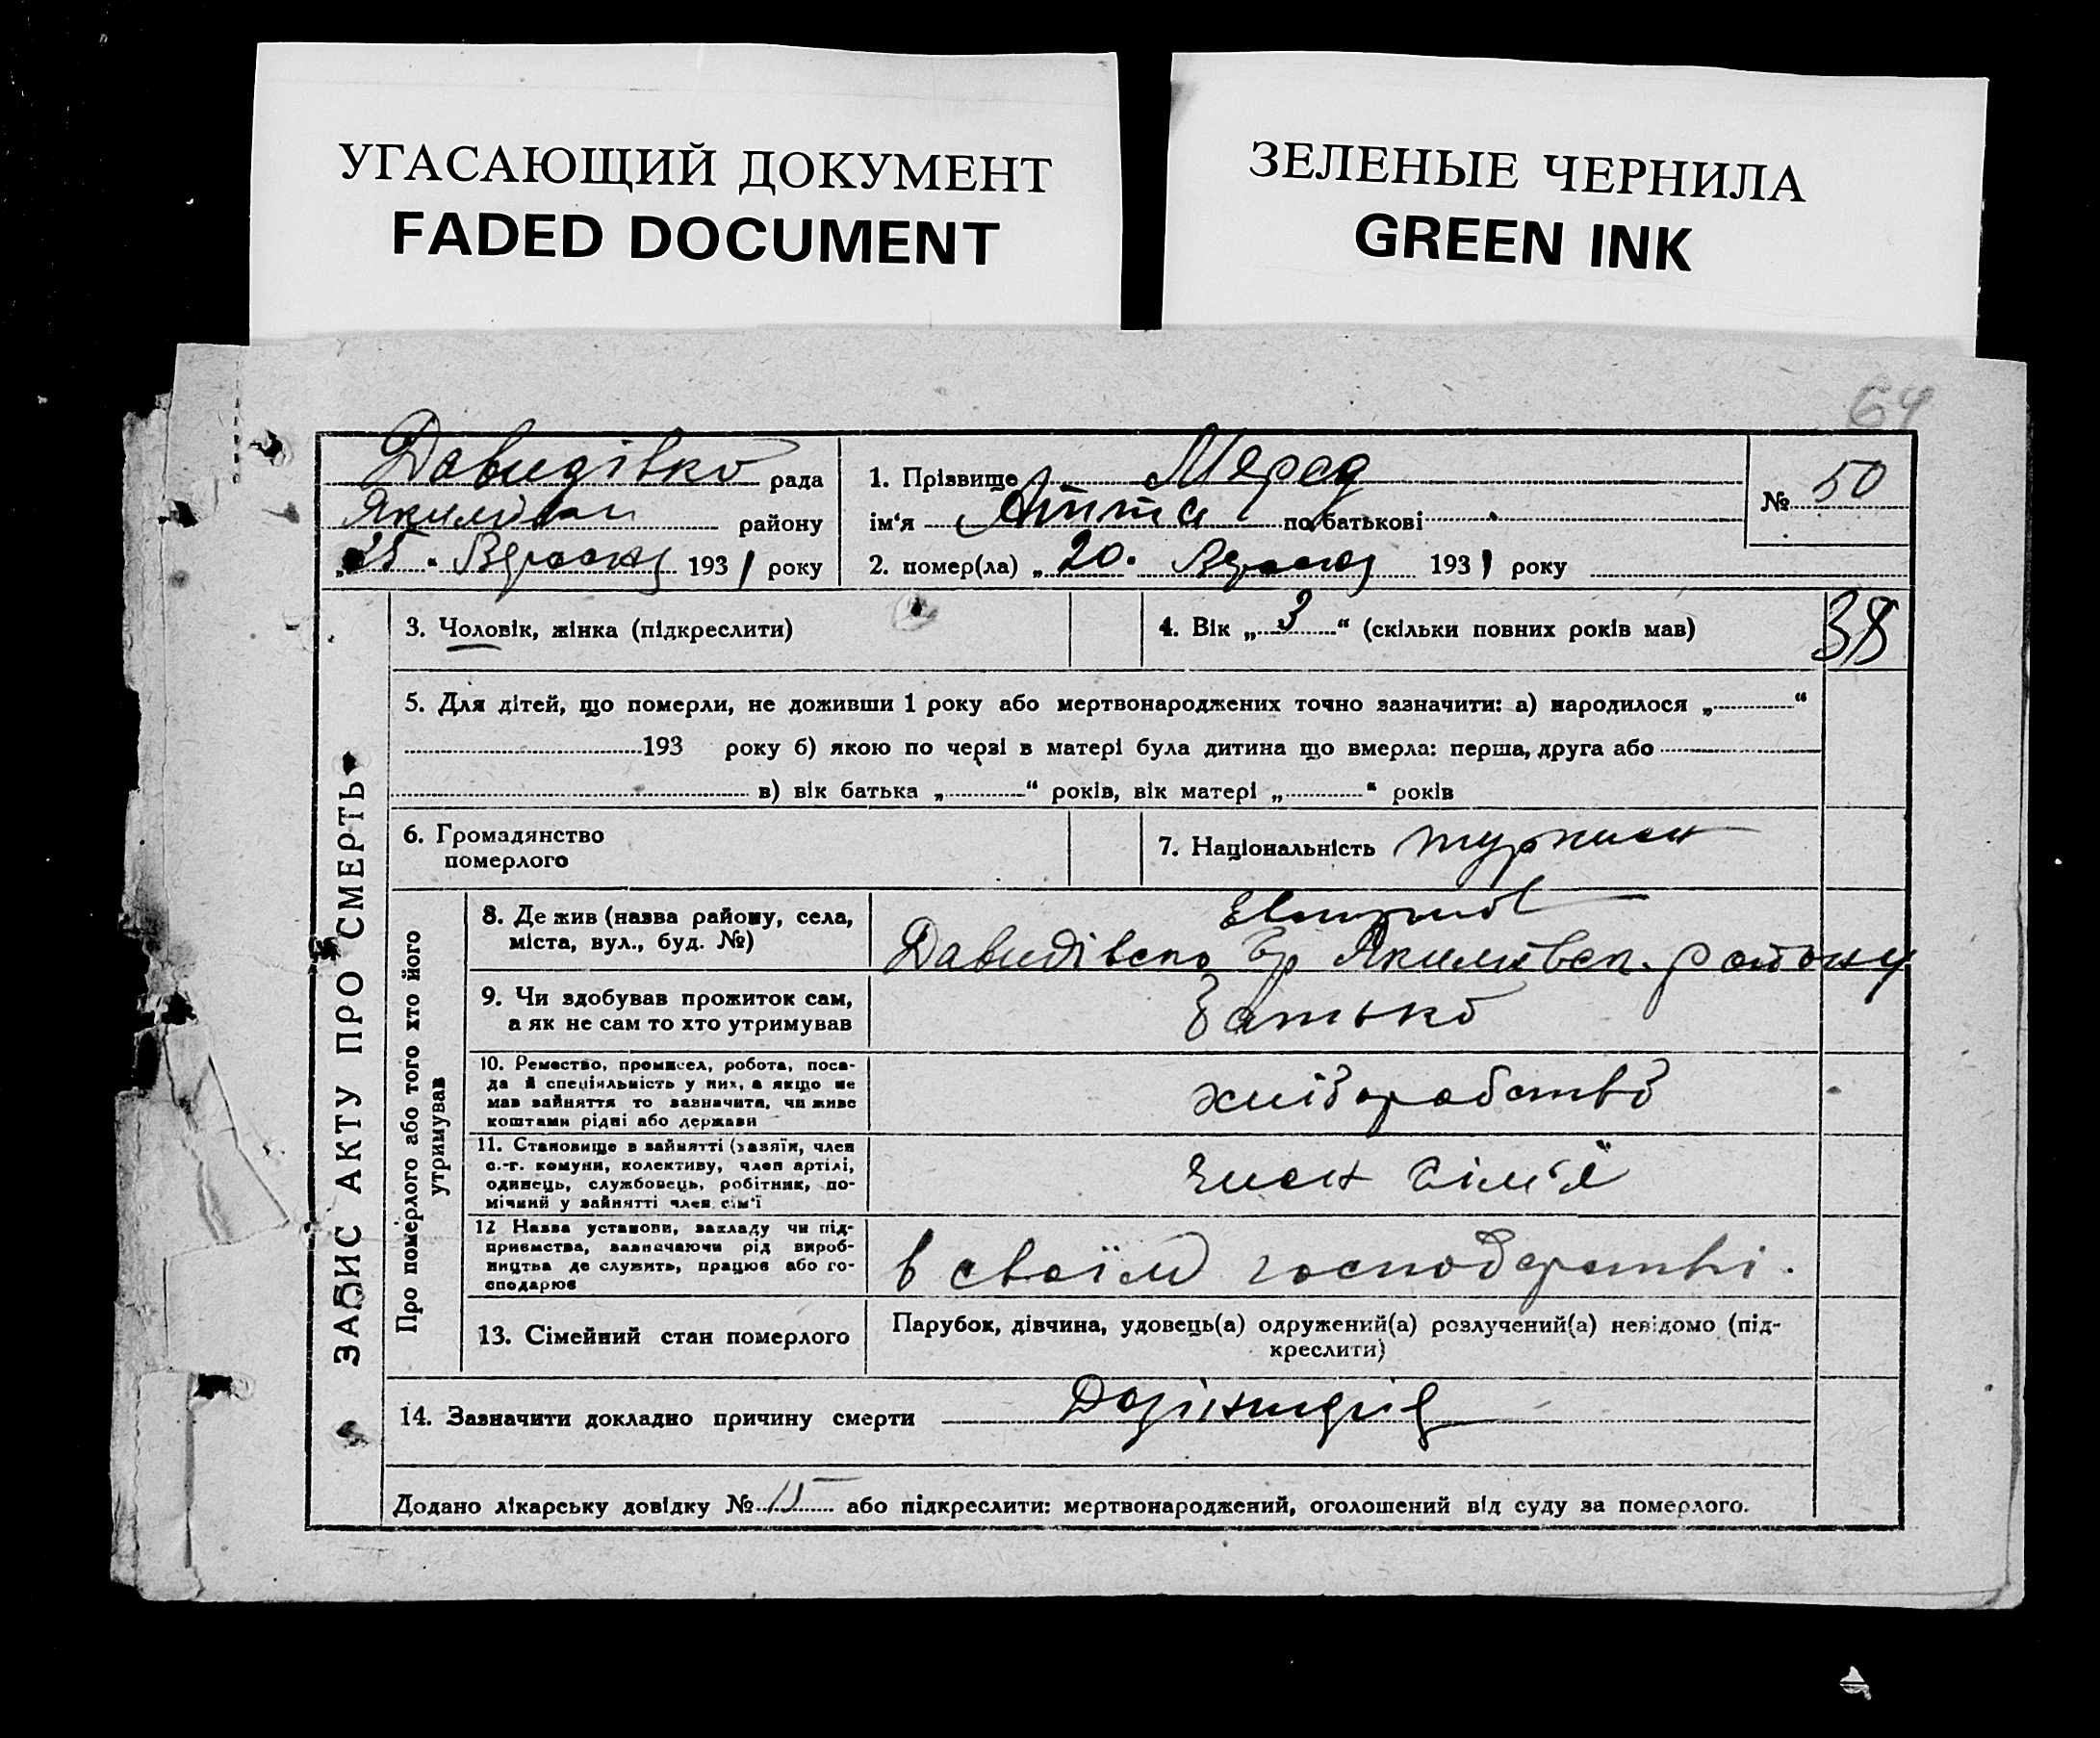 УГАСАЮЩИЙ ДОКУМЕНТ
FADED DOCUMENT
ЗЕЛЕНЫЕ ЧЕРНИЛА
GREEN INK
64
Давидівко рада
району
„25“ Вересня 1931 року
1. Прізвище Мерад
ім‘я по батькові
2. помер(ла) „20. Вересня 1931 року
№ 50
ЗАПИС АКТУ ПРО СМЕРТЬ
3. Чоловік, жінка (підкреслити)
4. Вік „3“ (скільки повних років мав)
38
5. Для дітей, що померли, не доживши 1 року або мертвонароджених точно зазначити: а) народилося „ “
193 року б) якою по черзі в матері була дитина що вмерла: перша, друга або
в) вік батька „ “ років, вік матері „ “ років
6. Громадянство
померлого
7. Національність
Про померлого або того хто його
утримував
8. Де жив (назва району, села,
міста, вул., буд. №)
Давидівсько району
9. Чи здобував прожиток сам,
а як не сам то хто утримував
Батько
10. Ремество, промисел, робота, поса-
да й спеціяльність у них, а якщо не
мав зайняття то зазначити, чи живе
коштами рідні або держави
хліборобство
11. Становище в зайнятті (хазяїн, член
с.-г. комуни, колективу, член артілі,
одинець, службовець, робітник, по-
мічний у зайнятті член сім‘ї
член сім‘ї
12 Назва установи, закладу чи під-
приємства, зазначаючи рід вироб-
ництва де служить, працює або го-
сподарює
в своїм господарстві.
13. Сімейний стан померлого
Парубок, дівчина, удовець(а) одружений(а) розлучений(а) невідомо (під-
креслити)
14. Зазначити докладно причину смерти
Додано лікарську довідку № 15 або підкреслити: мертвонароджений, оголошений від суду за померлого.